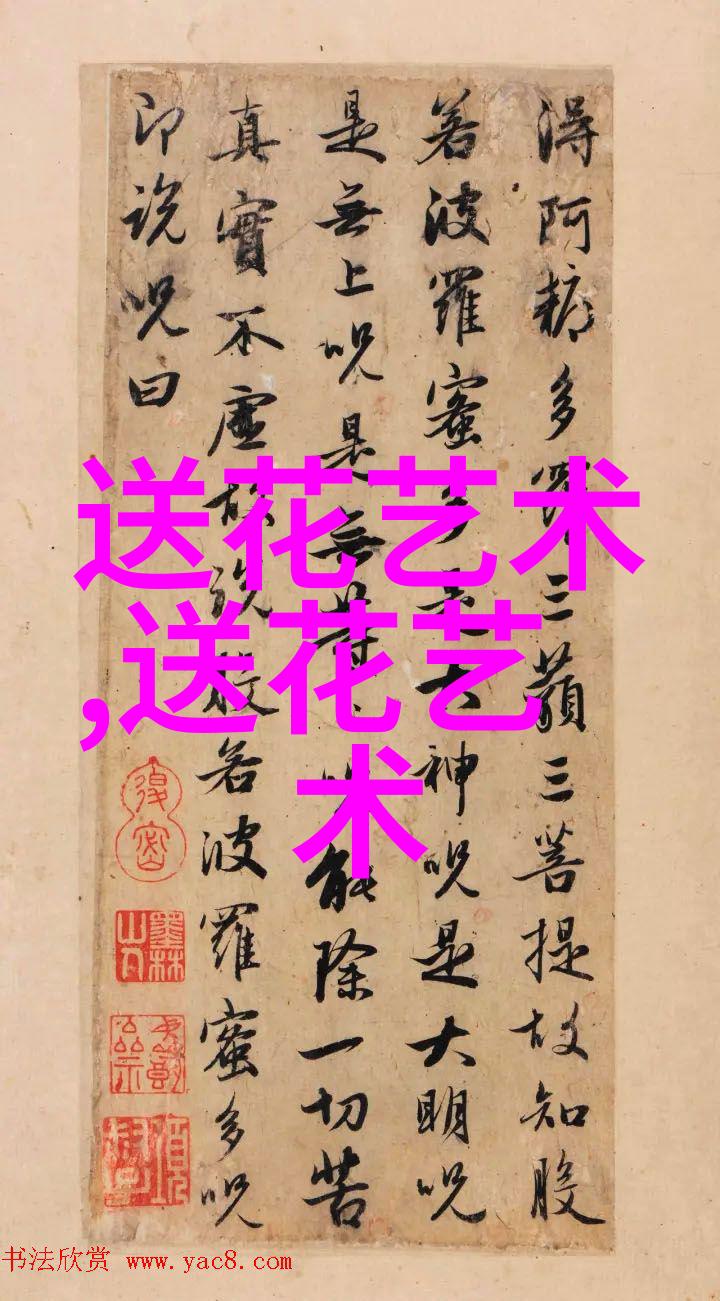 得阿耨多羅三藐三菩提故知般
若波羅蜜多是大神呪是大明呪
是無上呪是無等等呪能除一切苦
真實不虛故說般若波羅蜜多呪
即說呪曰
送花艺术
,送花艺
术
墨林山人
书法欣赏 www.yac8.com